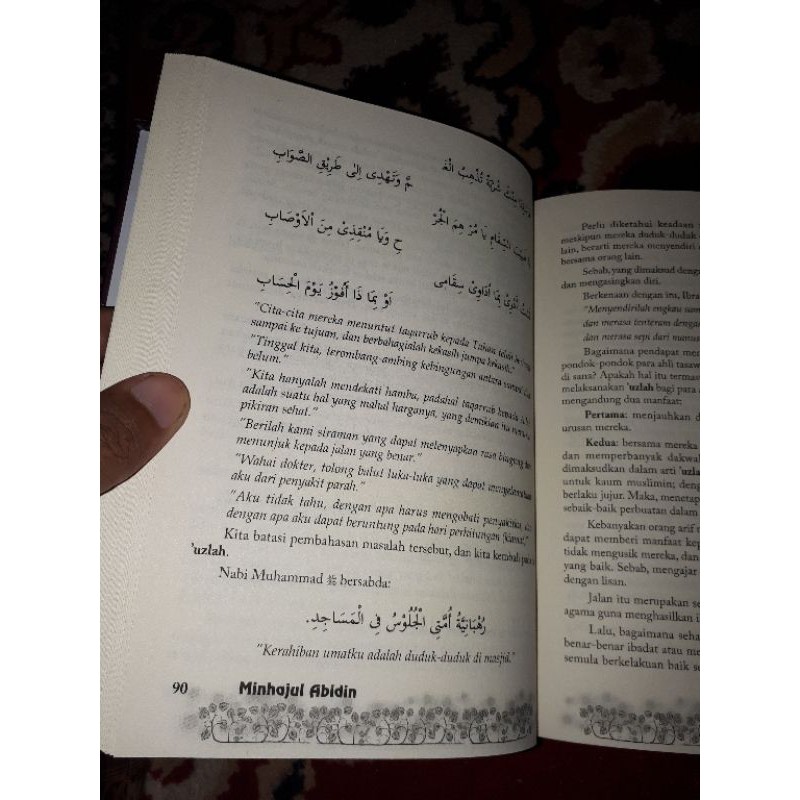 شَرْبَةً تُذْهِبُ الْغَـ ـمَّ وَتَهْدِى اِلٰى طَرِيْقِ الصَّوَابِ
السِّقَامِ يَا مَرْهَمَ الْجُرْ حِ وَيَا مُنْقِذِىْ مِنَ الْاَوْصَابِ
بِمَا اُدَاوِىْ سِقَامِى اَوْ بِمَا ذَا اَفُوْزُ يَوْمَ الْحِسَابِ
"Cita-cita mereka menuntut taqarrub kepada Tuhan telah
sampai ke tujuan, dan berbahagialah kekasih jumpa kekasih."
"Tinggal kita, terombang-ambing kebingungan antara sampai dan
belum."
"Kita hanyalah mendekati hambu, padahal taqarrub kepada
adalah suatu hal yang mahal harganya, yang demikian itu
pikiran sehat."
"Berilah kami siraman yang dapat melenyapkan rasa bingung dan
menunjuk kepada jalan yang benar."
"Wahai dokter, tolong balut luka-luka yang dapat menyelamatkan
aku dari penyakit parah."
"Aku tidak tahu, dengan apa harus mengobati penyakitku, dan
dengan apa aku dapat beruntung pada hari perhitungan (kiamat)."
Kita batasi pembahasan masalah tersebut, dan kita kembali pada
'uzlah.
Nabi Muhammad ﷺ bersabda:
رُهْبَانِيَّةُ أُمَّتِي الْجُلُوْسُ فِي الْمَسَاجِدِ.
"Kerahiban umatku adalah duduk-duduk di masjid."
90 Minhajul Abidin
Perlu diketahui keadaan
meskipun mereka duduk-duduk
lain, berarti mereka menyendiri
bersama orang lain.
Sebab, yang dimaksud deng
dan mengasingkan diri.
Berkenaan dengan itu, Ibra
"Menyendirilah engkau sam
dan merasa tenteram denga
dan merasa sepi dari manus
Bagaimana pendapat mer
pondok-pondok para ahli tasaw
di sana? Apakah hal itu termas
melaksanakan 'uzlah bagi para
mengandung dua manfaat:
Pertama: menjauhkan d
urusan mereka.
Kedua: bersama mereka
dan memperbanyak dakwah
dimaksudkan dalam arti 'uzla
untuk kaum muslimin; deng
berlaku jujur. Maka, menetap
sebaik-baik perbuatan dalam
Kebanyakan orang arif
dapat memberi manfaat kep
tidak mengusik mereka, dan
yang baik. Sebab, mengajar
dengan lisan.
Jalan itu merupakan se
agama guna menghasilkan i
Lalu, bagaimana seha
benar-benar ibadat atau me
semula berkelakuan baik se